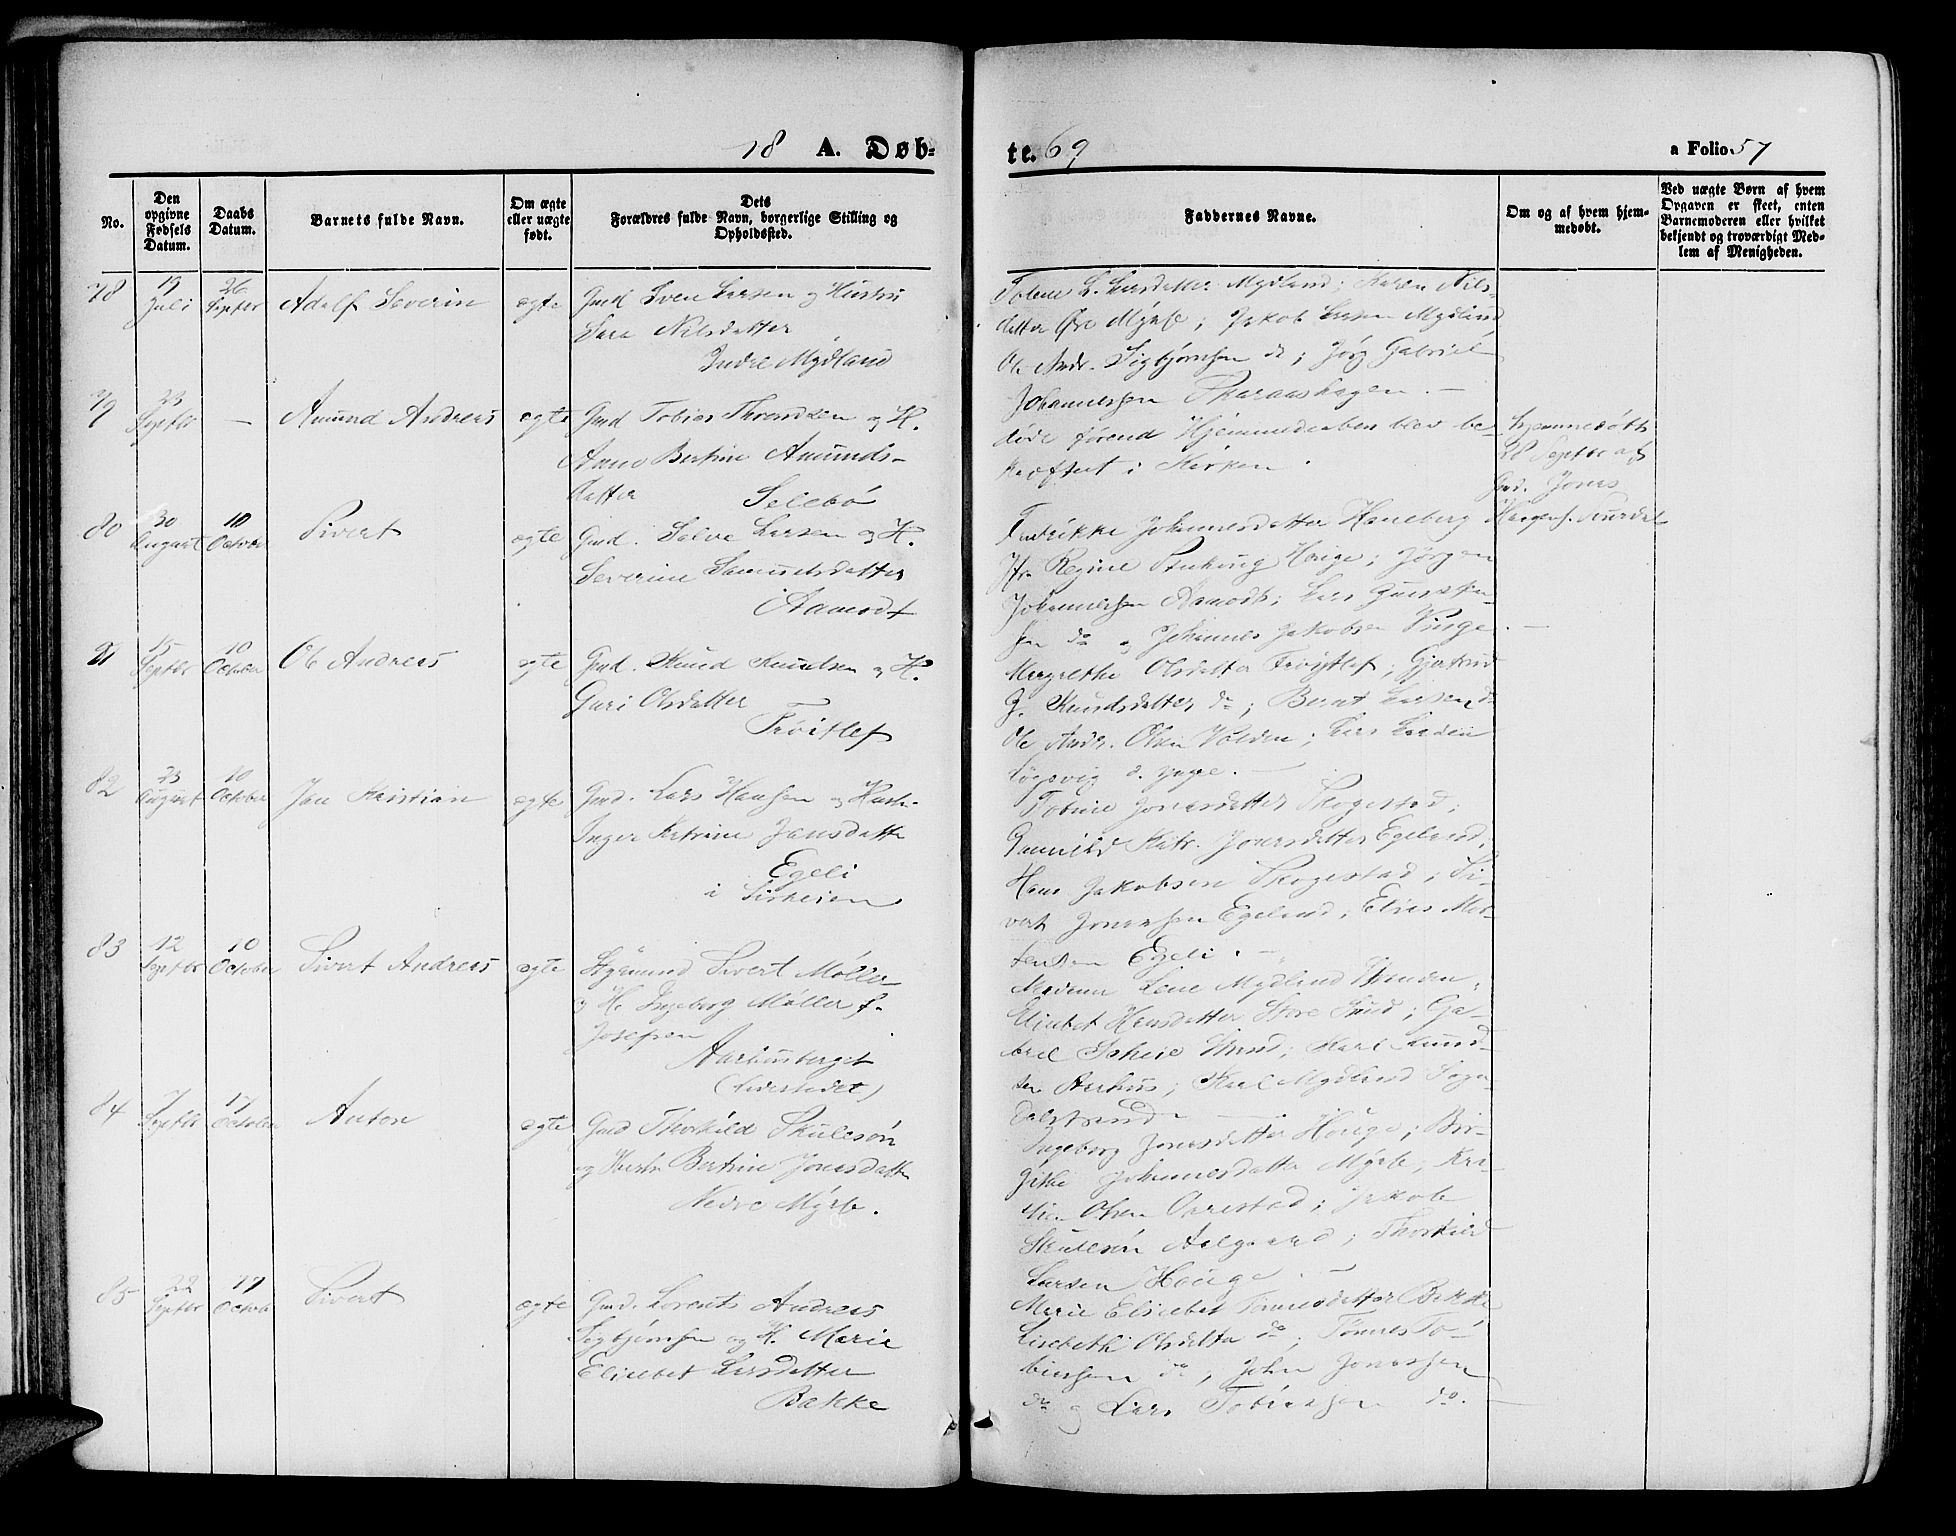 18 A. Døb-
te. 69
a Folio 57
No.
Den opgivne Fødsels Datum.
Daabs Datum.
Barnets fulde Navn.
Om ægte eller uægte født.
Dets Forældres fulde Navn, borgerlige Stilling og Opholdssted.
Faddernes Navne.
Om og af hvem hjem-
medøbt.
Ved uægte Børn af hvem
Opgaven er skeet, enten
Barnemoderen eller hvilket
bekjendt og troværdigt Med-
lem af Menigheden.
78
19 Juli
26 Septbr
Adolf Severin
egte
Gmd Sven Larsen og Hustru
Sara Nilsdatter
Indre Mydland
Tolene L. Larsdatter Mydland; Karen Nils-
datter Øvr Myrbø; Jakob Larsen Mydland
Ole Andr. Sigbjørnsen do; Jørg Gabriel
Johannessen Skaraashagen. —
79
23 Septbr
—
Amund Andreas
egte
Gmd Tobias Throndsen og H.
Anne Bertine Amunds-
datter
Selebø
døde førend Hjemmedaaben blev be-
kræftet i Kirken.
hjemmedøbt
28 Septbr af
Gmd. Jonas
80
30 August
10 October
Sivert
egte
Gmd. Salve Larsen og H.
Severine Samuelsdatter
Aamodt
Fredrikke Johannesdatter Haneberg
Jfr. Regine Hauge; Jørgen
Johannessen Aamodt; Lars
sen do og Johannes Jakobsen Hauge. —
81
15 Septbr
10 October
Ole Andreas
egte
Gmd. Knud Knudsen og H.
Guri Olsdatter
Frøitlef
Margrethe Olsdatter Frøitlef; Gjertrud
G. Knudsdatter do; Bernt Larsen do
Ole Andr. Olsen Valden; Lars
Løgsvig —
82
23 August
10 October
Jan Kristian
egte
Gmd. Lars Hansen og Hustr.
Inger Katrine Jansdatter
Egeli
i Sirheien
Tobine Jonasdatter Skogestad;
Gunnild Katr. Jonasdatter Egeland,
Hans Jakobsen Skogestad; Si-
vert Jonassen Egeland; Elias Mor-
tensen Egeli. —
83
12 Septbr
10 October
Sivert Andreas
egte
Styrmand Sivert Møller
og H. Ingeborg Møller f.
Josefsen
Aarhusberget
(Ladestedet)
Madame Lene Mydland Stranden,
Elisabet Hansdatter Store Sund; Ga-
briel Scheie Strand; Karl Knud-
sen Aarhus; Karl Mydland Soge-
dalstrand —
84
7 Septbr
17 October
Anton
egte
Gmd Thorkild Skulesøn
og Hustr. Bertine Jonasdatter
Nedre Myrbø.
Ingeborg Jonasdatter Hauge; Bir-
githe Johannesdatter Myrbø; Kri-
stian Olsen Orrestad; Jakob
Skulesøn Aalgaard; Thorkild
Larsen Hauge. —
85
22 Septbr
17 October
Sivert
egte
Gmd. Lorents Andreas
Sigbjørnsen og H. Marie
Elisabet Larsdatter
Bakke
Marie Elisabet Tønnesdatter Bakke
Lisabeth Olsdatter do; Tønnes To-
biassen do, John Jonassen
do og Lars Tobiassen do. —